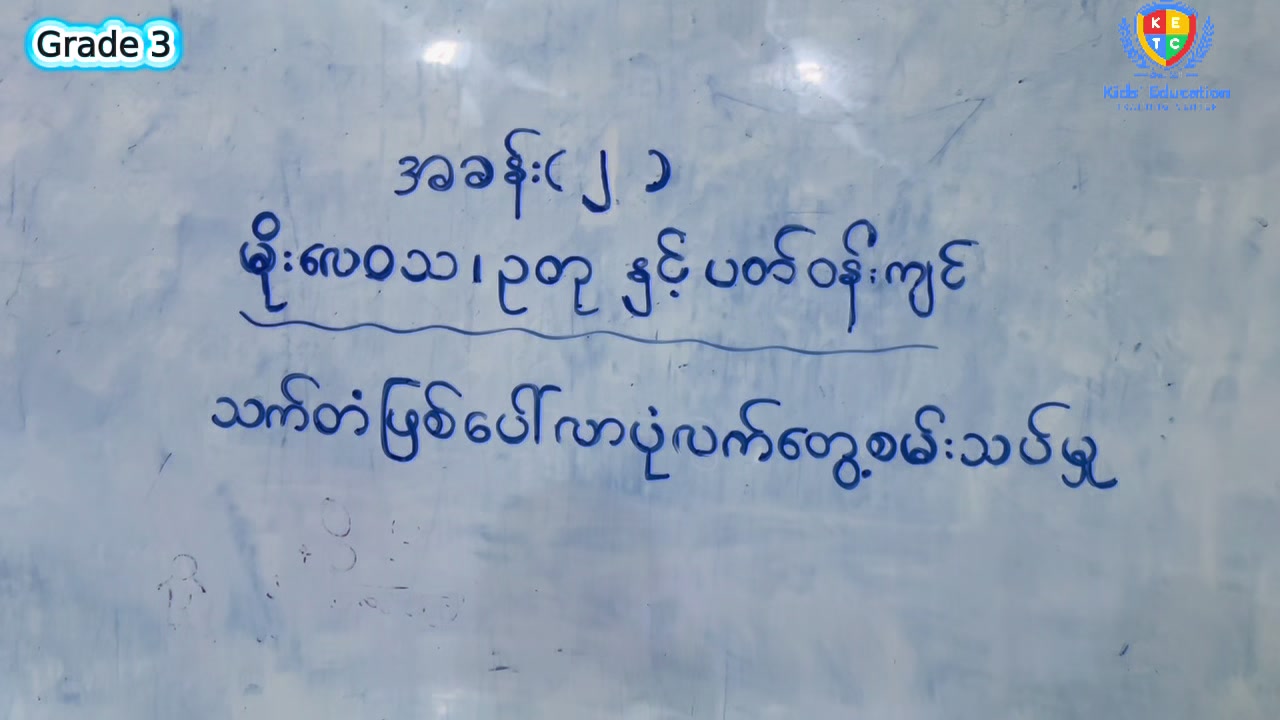 Grade 3
K E
T C
Kids' Education
အခန်း(၂)
မိုးလေဝသ၊ဥတု နှင့် ပတ်ဝန်းကျင်
သက်တံဖြစ်ပေါ်လာပုံလက်တွေ့စမ်းသပ်မှု